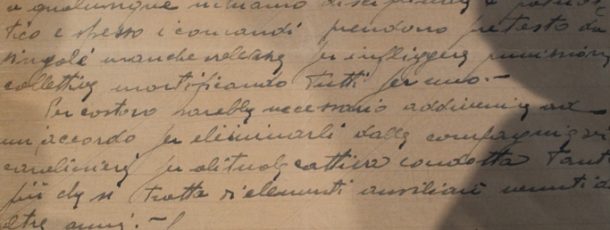 a qualunque richiamo disciplinare e
tico e spesso i comandi prendono pretesto da
singole manchevolezze per infliggere punizioni
collettive mortificando tutti per uno.-
Per costoro sarebbe necessario addivenire ad
un accordo per eliminarli dalle compagnie
carabinieri per abituale cattiva condotta tant
più che si tratta di elementi ausiliari venuti a
oltre armi.-